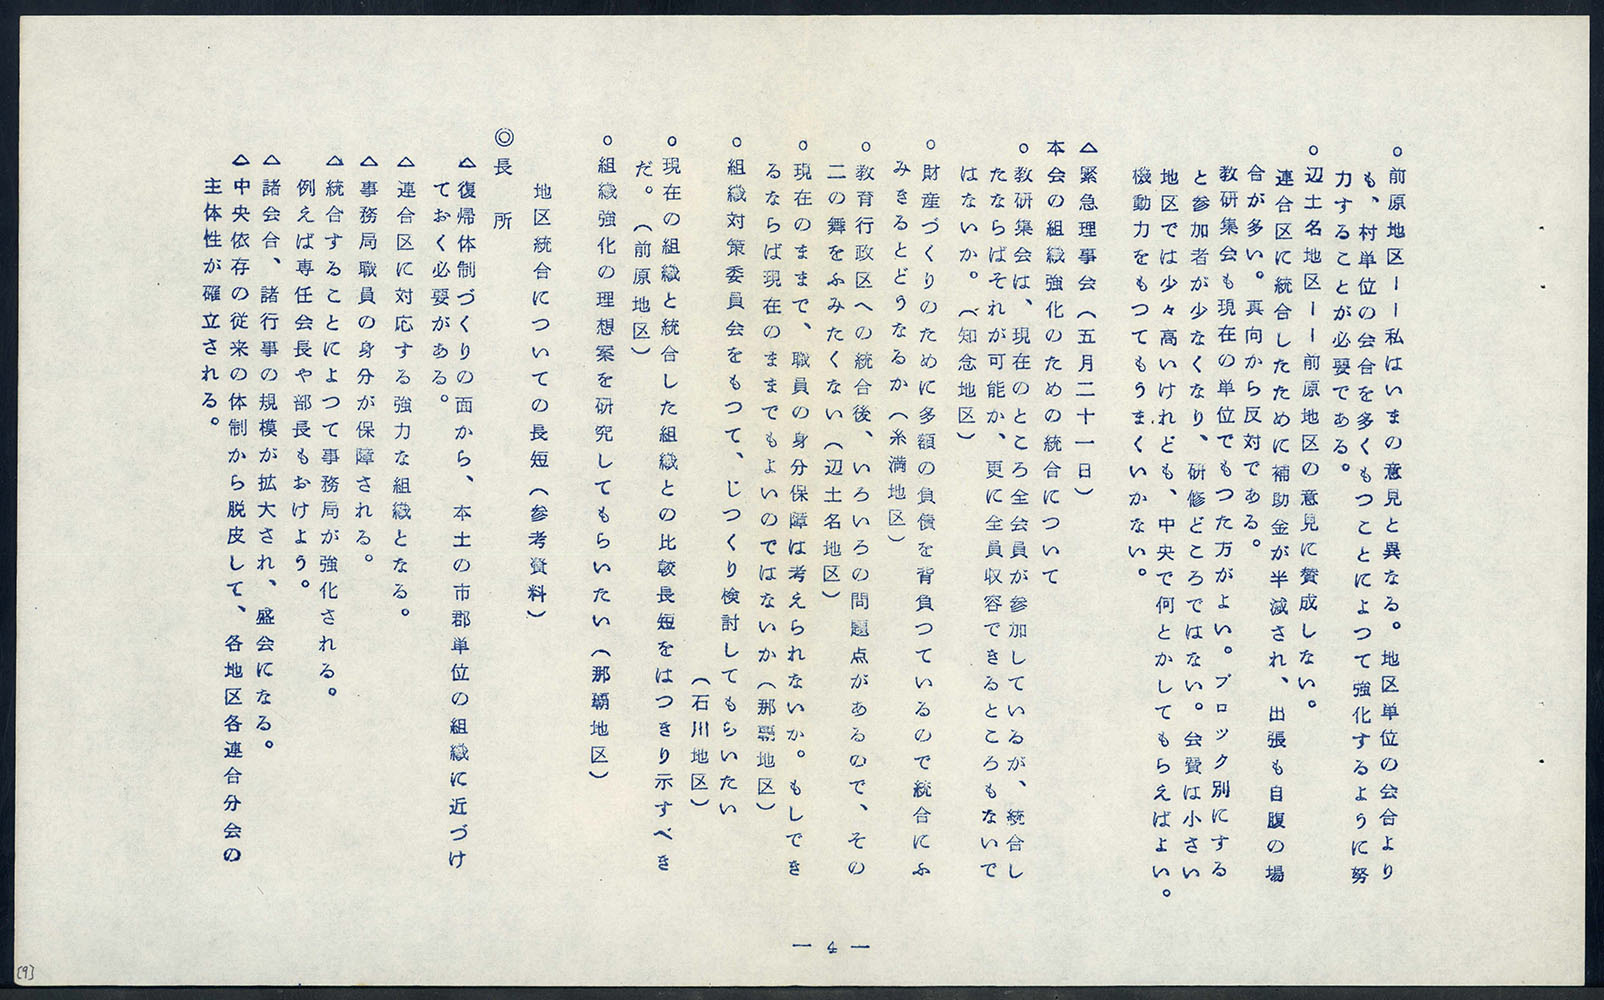 ○前原地区ーー私はいまの意見と異なる。地区単位の会合より
も、村単位の会合を多くもつことによつて強化するように努
力することが必要である。
○辺土名地区ーー前原地区の意見に賛成しない。
連合区に統合したために補助金が半減され、出張も自腹の場
合が多い。真向から反対である。
教研集会も現在の単位でもつた方がよい。ブロック別にする
と参加者が少なくなり、研修どころではない。会費は小さい
地区では少々高いけれども、中央で何とかしてもらえばよい。
機動力をもつてもうまくいかない。
△緊急理事会（五月二十一日）
本会の組織強化のための統合について
○教研集会は、現在のところ全会員が参加しているが、統合し
たならばそれが可能か、更に全員収容できるところもないで
はないか。（知念地区）
○財産づくりのために多額の負債を背負つているので統合にふ
みきるとどうなるか（糸満地区）
○教育行政区への統合後、いろいろの問題点があるので、その
二の舞をふみたくない（辺土名地区）
○現在のままで、職員の身分保障は考えられないか。もしでき
るならば現在のままでもよいのではないか（那覇地区）
○組織対策委員会をもつて、じつくり検討してもらいたい
（石川地区）
○現在の組織と統合した組織との比較長短をはつきり示すべき
だ。（前原地区）
○組織強化の理想案を研究してもらいたい（那覇地区）
地区統合についての長短（参考資料）
◎長　所
△復帰体制づくりの面から、本土の市郡単位の組織に近づけ
ておく必要がある。
△連合区に対応する強力な組織となる。
△事務局職員の身分が保障される。
△統合することによつて事務局が強化される。
例えば専任会長や部長もおけよう。
△諸会合、諸行事の規模が拡大され、盛会になる。
△中央依存の従来の体制から脱皮して、各地区各連合分会の
主体性が確立される。
— 4 —
[9]